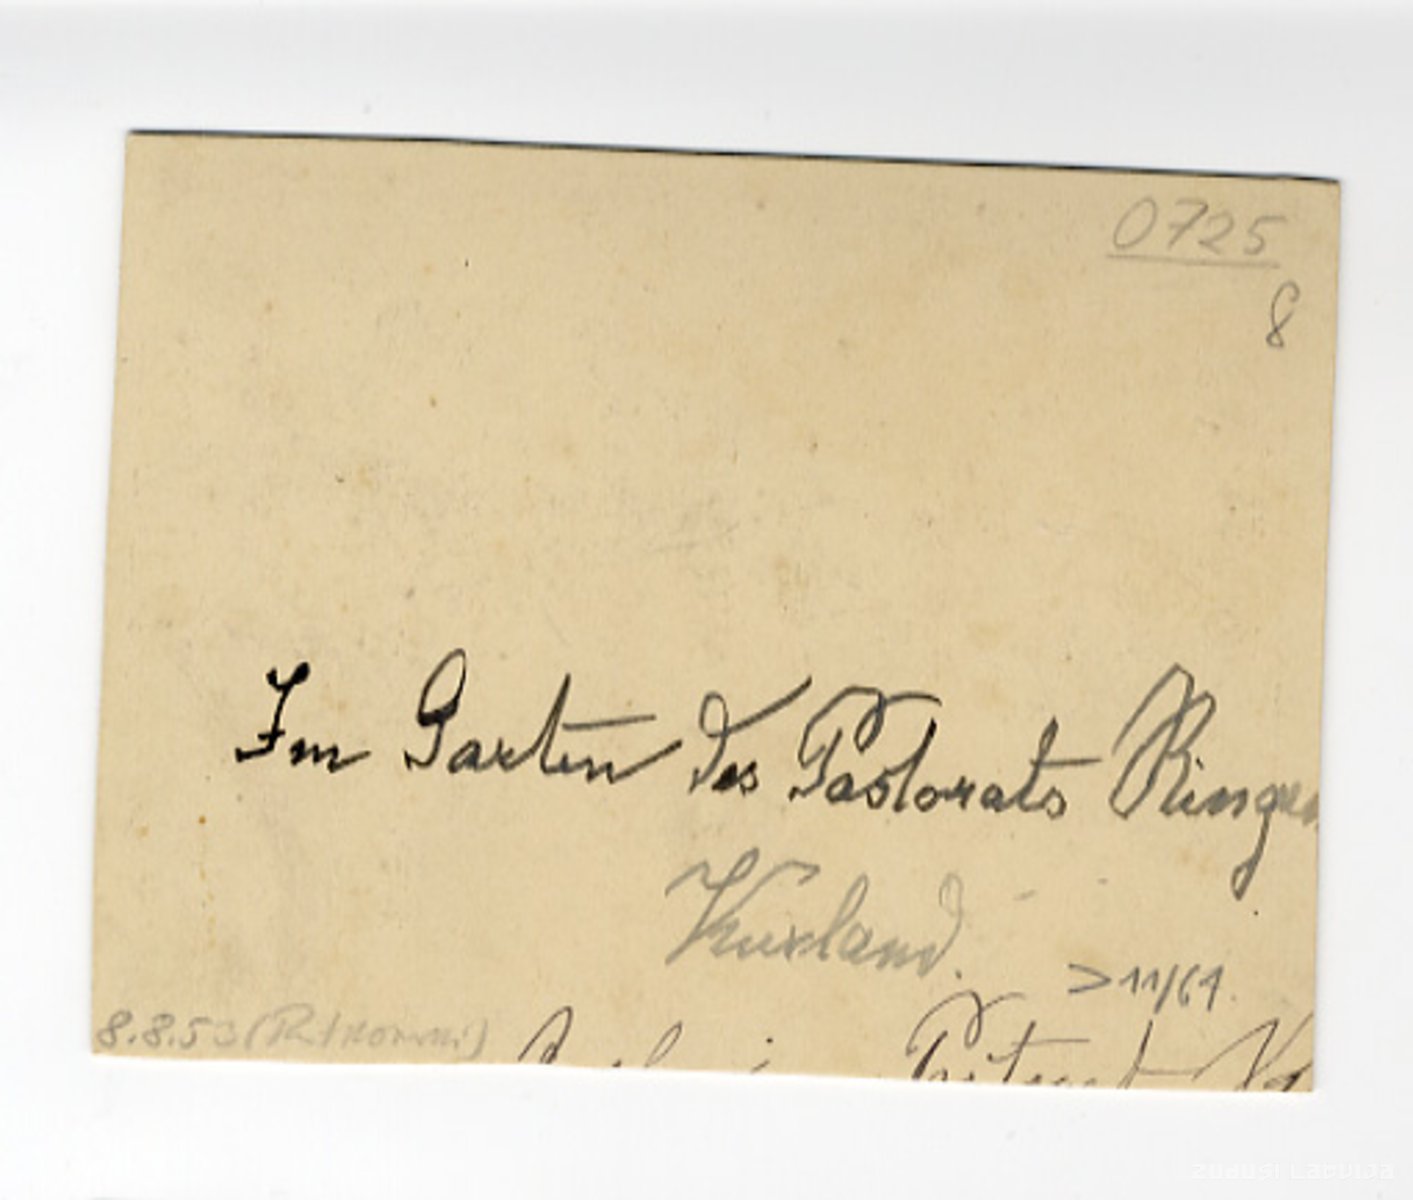 0725
8
Im Garten des Pastorats Ringen
Kurland.
> 11/61.
8.8.53
zudusi Latvija